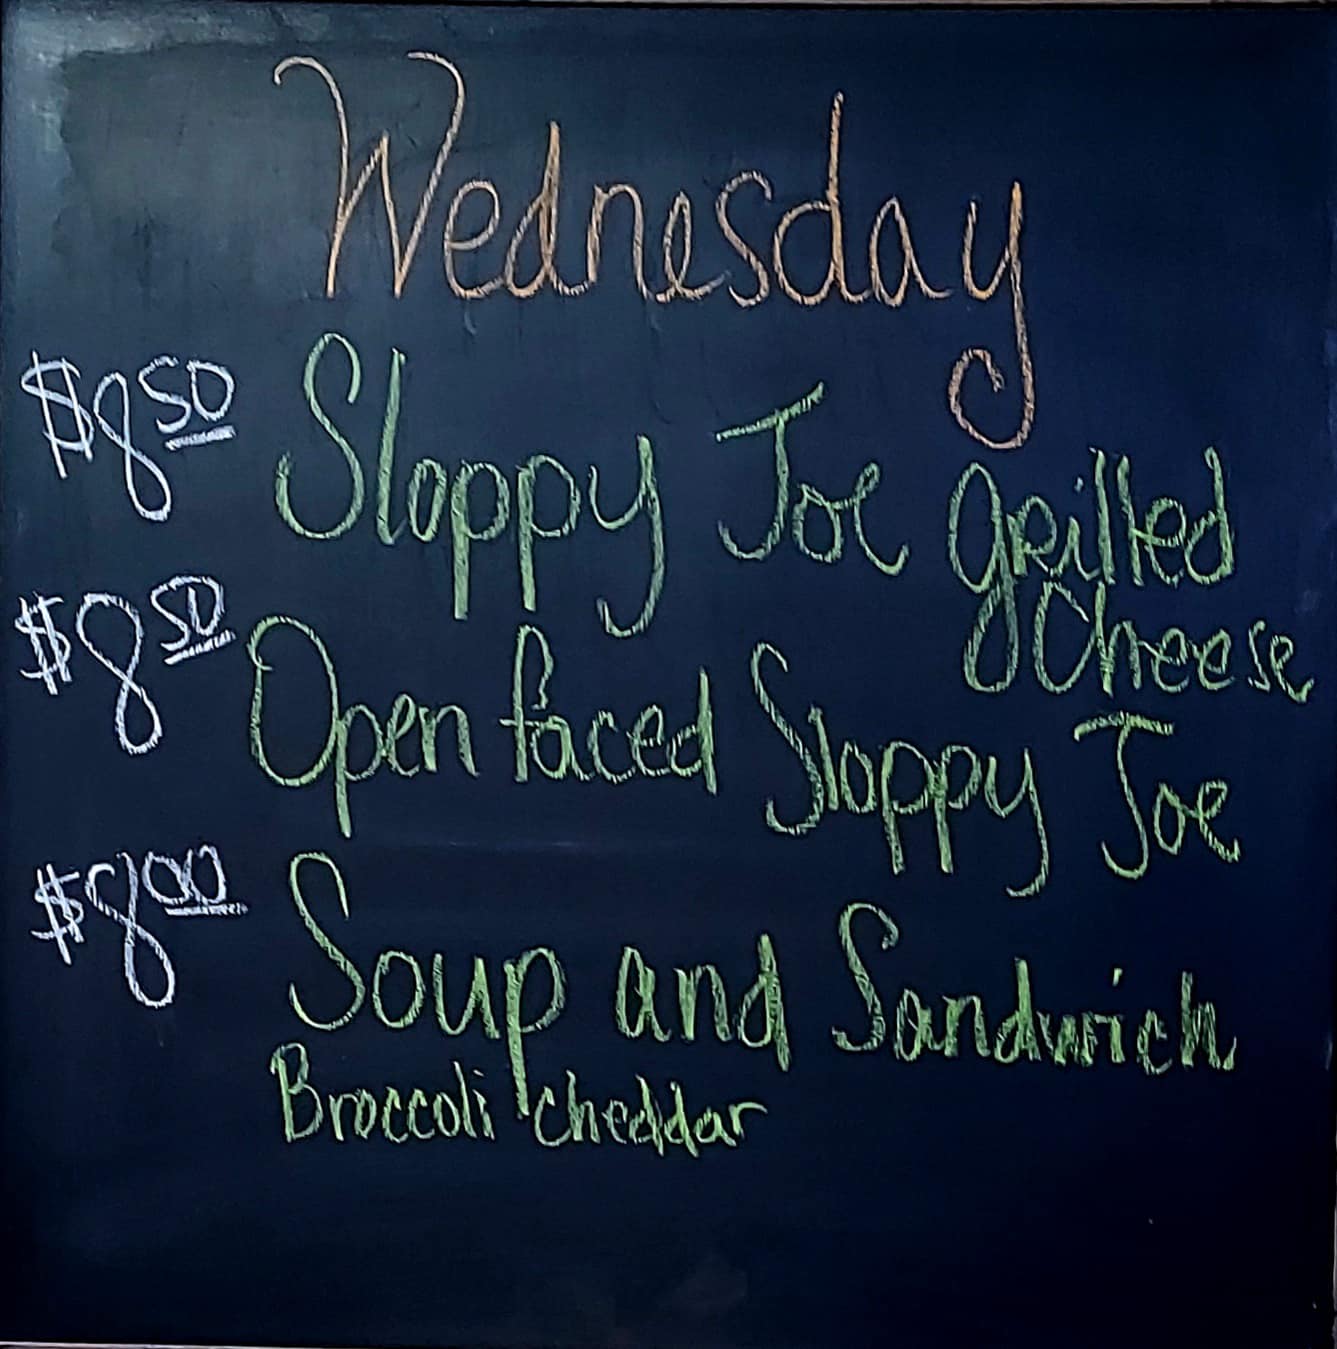 Wednesday
$8.50 Sloppy Joe grilled
Cheese
$8.50 Open faced Sloppy Joe
$8.00 Soup and Sandwich
Broccoli cheddar